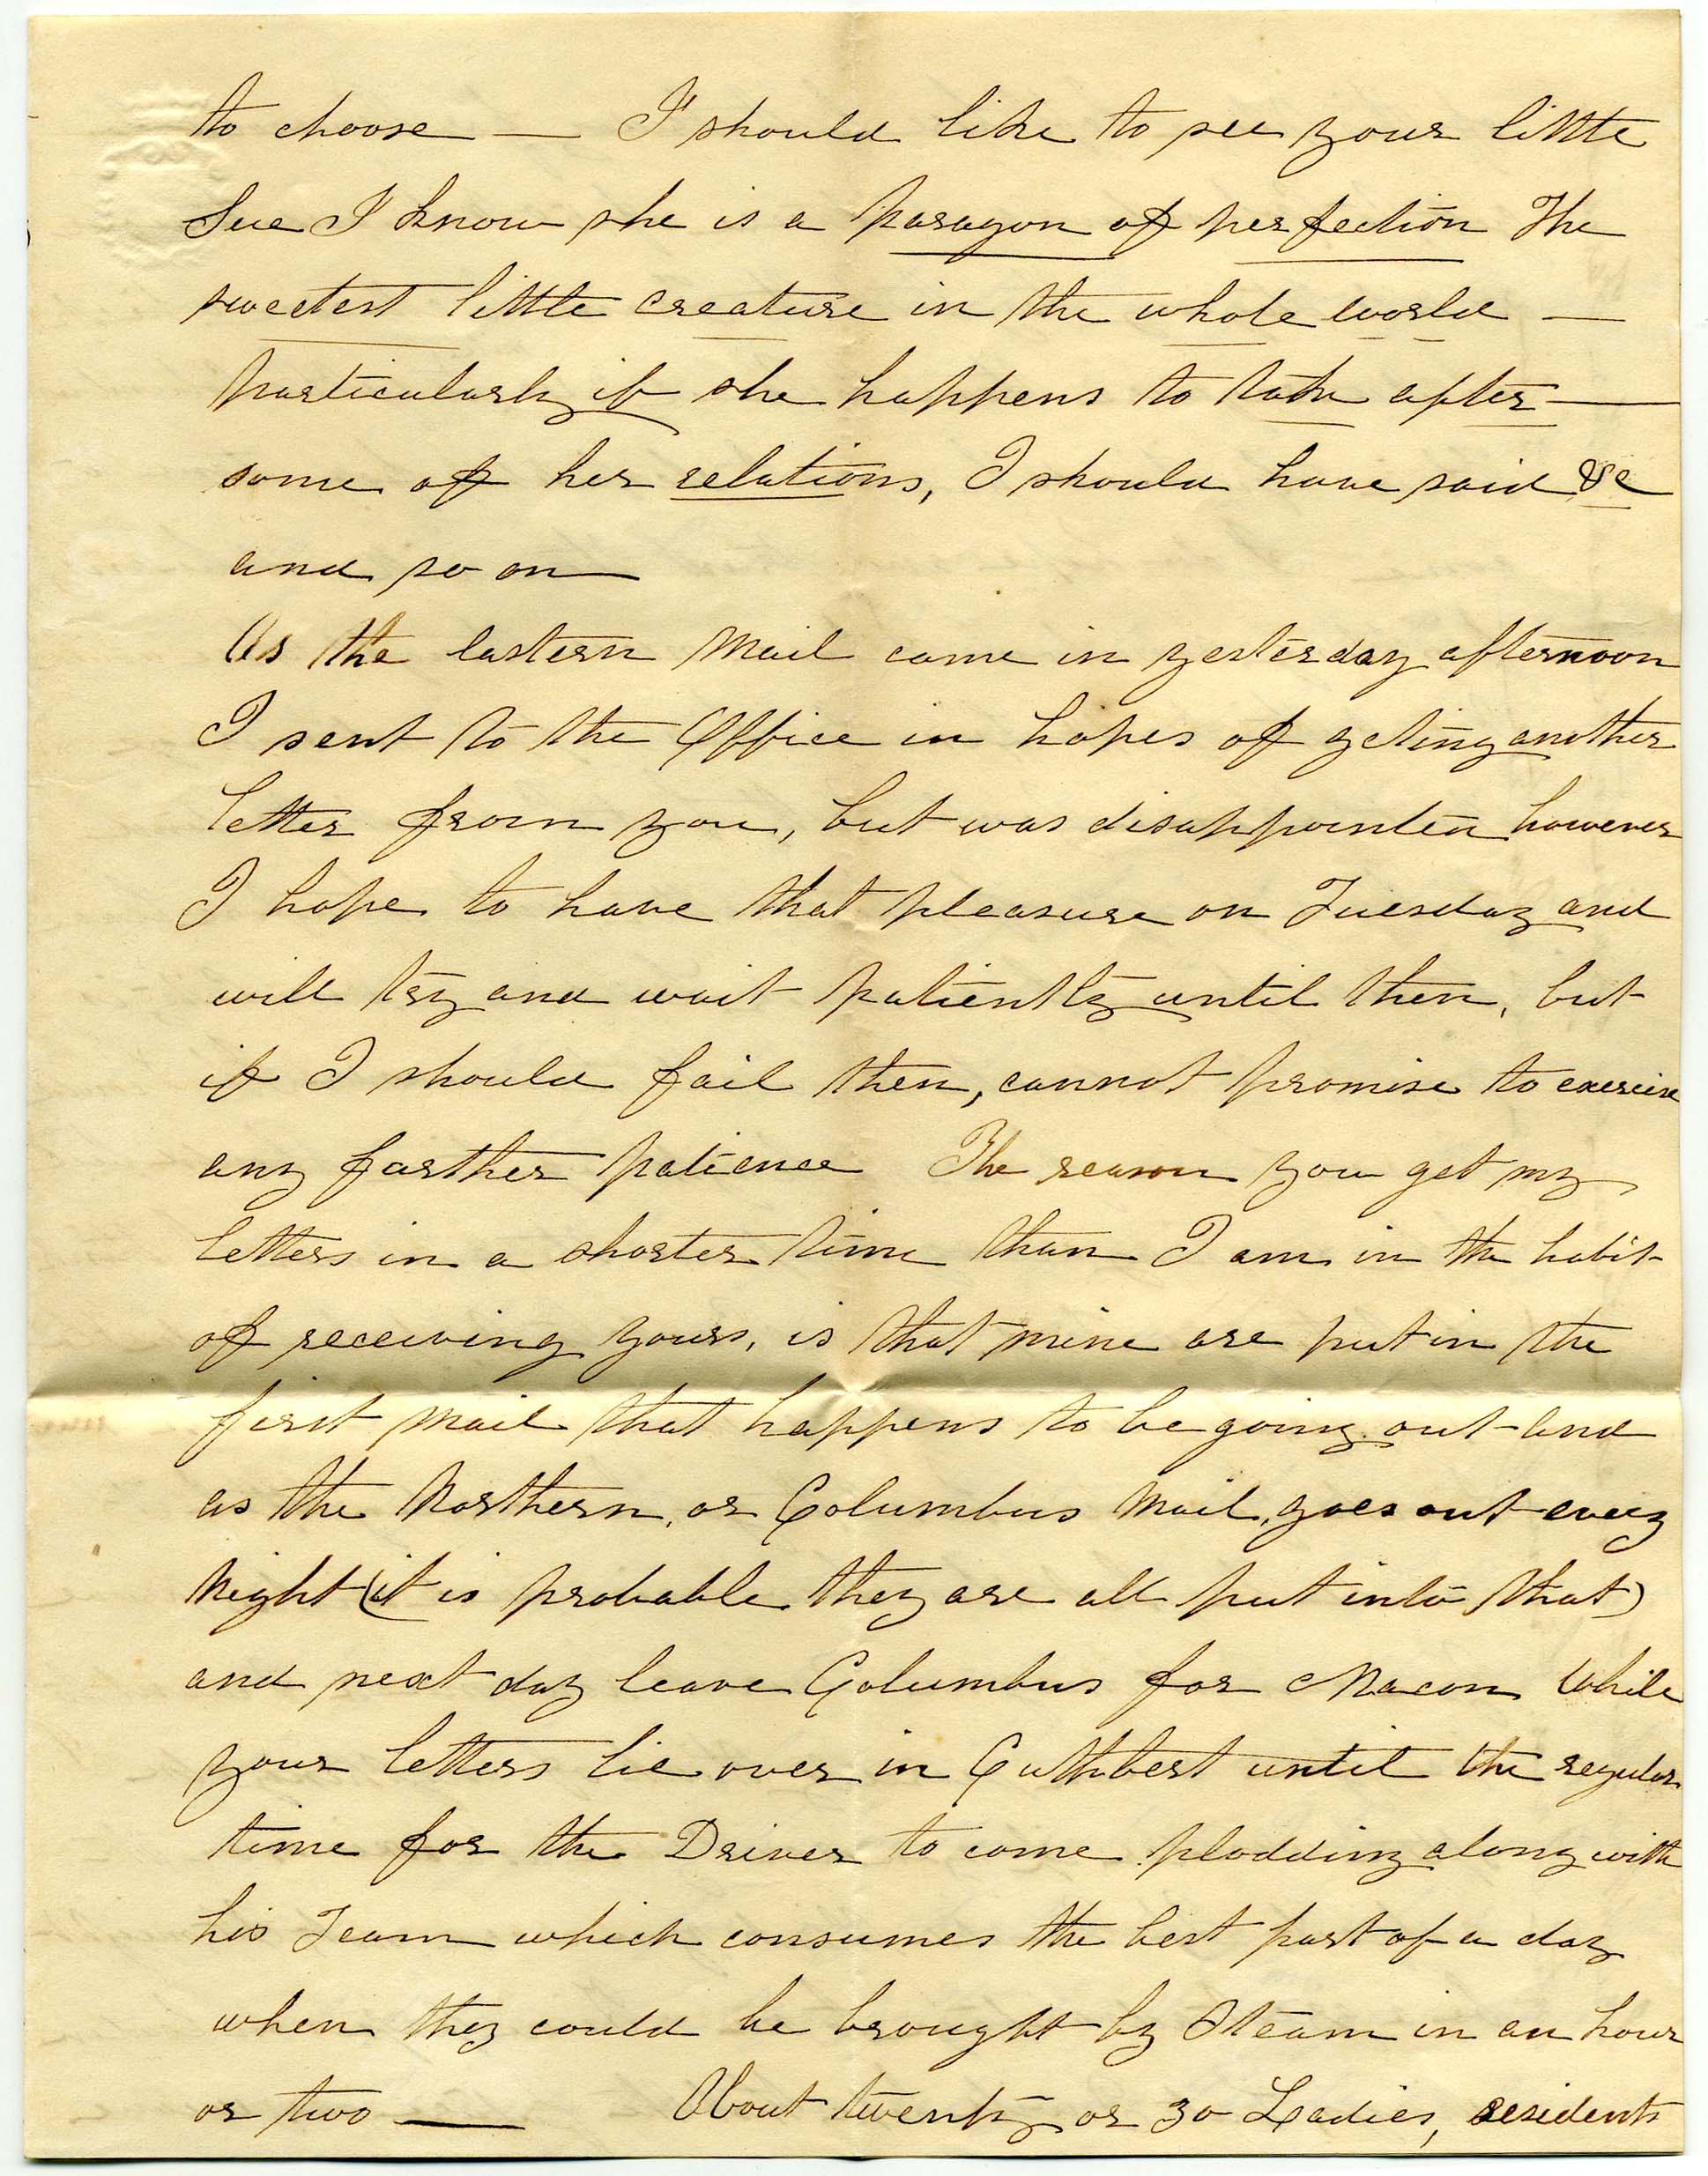 to choose — I should like to see your little
Sue I know she is a paragon of perfection The
sweetest little creature in the whole world —
particularly if she happens to take after —
some of her relations, I should have said &c
and so on
As the Eastern Mail came in yesterday afternoon
I sent to the Office in hopes of geting another
letter from you, but was disappointed however
I hope to have that pleasure on Tuesday and
will try and wait patiently until then, but
if I should fail then, cannot promise to exercise
any farther patience The reason you get my
letters in a shorter time than I am in the habit
of receiving yours, is that mine are put in the
first Mail that happens to be going out and
as the Northern, or Columbus Mail, goes out every
Night (it is probable they are all put into that)
and next day leave Columbus for Macon While
your letters lie over in Cuthbert until the regular
time for the Driver to come plodding along with
his Team which consumes the best part of a day
when they could be brought by Steam in an hour
or two — About twenty or 30 Ladies, residents